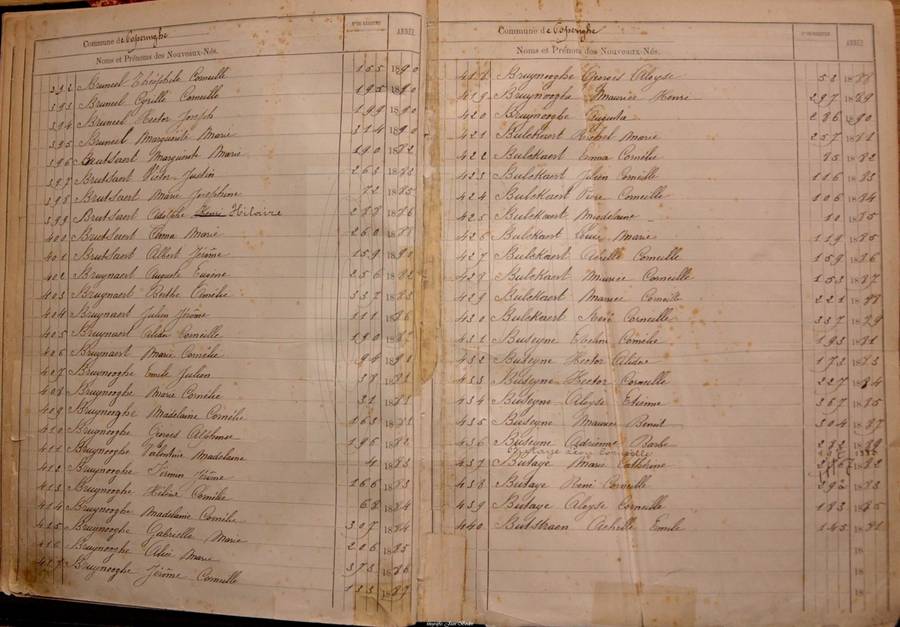 Commune de Poperinghe
N° DU REGISTRE
ANNÉE
Noms et Prénoms des Nouveaux-Nés.
392 Bruneel Théophile Corneille 155 1890
393 Bruneel Cyrille Corneille 195 1890
394 Bruneel Hector Joseph 199 1890
395 Bruneel Marguerite Marie 314 1890
396 Brutsaert Marguerite Marie 190 1882
397 Brutsaert Victor Justin 263 1883
398 Brutsaert Marie Joséphine 72 1885
399 Brutsaert Adolphe Henri Hilaire 288 1886
400 Brutsaert Anna Marie 260 1888
401 Brutsaert Albert Jérôme 159 1890
402 Bruynaert Auguste Eugène 256 1882
403 Bruynaert Berthe Emélie 337 1883
404 Bruynaert Julien Jérôme 111 1886
405 Bruynaert Corneille 190
406 Bruynaert Marie Cornélie 94
407 Bruynooghe Emile Julien 38 1881
408 Bruynooghe Marie Cornélie 31 1881
409 Bruynooghe Madelaine Cornélie 163
410 Bruynooghe Georges Alphonse 196 1882
411 Bruynooghe Valentine Madelaine 4 1883
412 Bruynooghe Firmin Jérôme 166 1883
413 Bruynooghe Hélène Cornélie 68 1884
414 Bruynooghe Madelaine Cornélie 307 1884
415 Bruynooghe Gabrielle Marie 206 1885
416 Bruynooghe Alice Marie 373 1886
417 Bruynooghe Jérôme Corneille 133 1887
Commune de Poperinghe
N° DU REGISTRE
ANNÉE
Noms et Prénoms des Nouveaux-Nés.
418 Bruynooghe Georges Aloyse 52 1888
419 Bruynooghe Maurice Henri 297 1889
420 Bruynooghe Augusta 286 1890
421 Bulckaert Rachel Marie 257 1881
422 Bulckaert Emma Cornélie 85 1882
423 Bulckaert Julien Corneille 116 1883
424 Bulckaert Corneille 106 1884
425 Bulckaert Madelaine 10 1885
426 Bulckaert Marie 119 1885
427 Bulckaert Corneille 159 1886
428 Bulckaert Maurice Corneille 153 1887
429 Bulckaert Maurice Corneille 221 1888
430 Bulckaert René Corneille 337 1889
431 Buseyne Cornélie 193 1881
432 Buseyne Hector 173 1883
433 Buseyne Hector Corneille 227 1884
434 Buseyne Aloyse Etienne 367 1885
435 Buseyne Maurice Benoit 304 1887
436 Buseyne Adrienne Barbe 282 1889
Butaye Léon Corneille
437 Butaye Marie Cathérine 1882
438 Butaye Henri Corneille 292 1883
439 Butaye Aloyse Corneille 183 1885
440 Butstraen Achille Emile 145 1881
18
18
18